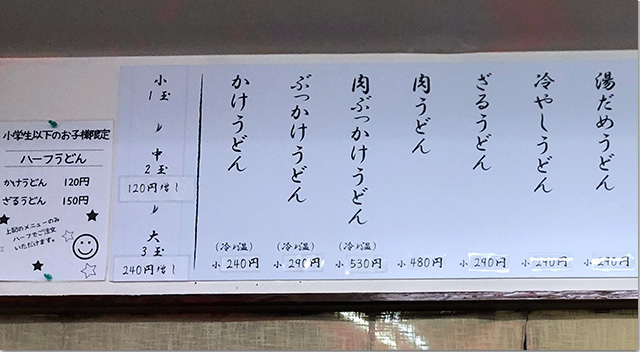 湯だめうどん
小 290円
冷やしうどん
小 290円
ざるうどん
小 290円
肉うどん
小 480円
肉ぶっかけうどん
(冷・温)
小 530円
ぶっかけうどん
(冷・温)
小 290円
かけうどん
(冷・温)
小 240円
小
1玉
〃
中
2玉
120円増し
〃
大
3玉
240円増し
小学生以下のお子様限定
ハーフうどん
かけうどん 120円
ざるうどん 150円
上記のメニューのみ
ハーフをご注文
いただけます。